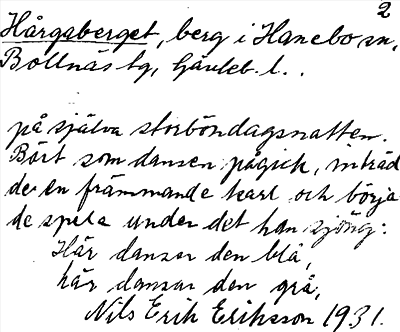 2
Hårgaberget, berg i Hanebo sn,
Bollnäs tg, Gävleb. l..
på själva storböndagsnatten.
Bäst som dansen pågick, inträd
de en främmande karl och börja
de spela under det han sjöng:
Här dansar den blå,
här dansar den grå,
Nils Erik Eriksson 1931.